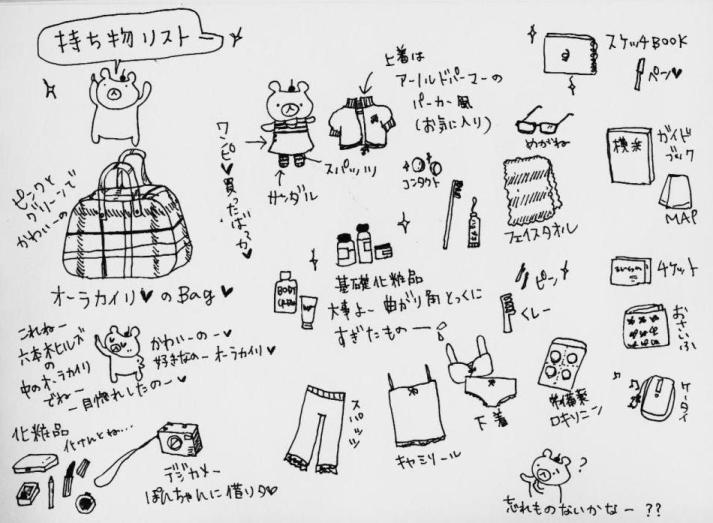 持ち物リスト
ピンクと
グリーンで
かわいーの
オーラカイリ♥のBag♥
これねー
六本木ヒルズ
の
中のオーラカイリ
でねー
一目惚れしたのー♥
かわいーのー♥
好きなのーオーラカイリ♥
化粧品
化けんとね…
デジカメー
ぽんちゃんに借りタ♥
ワンピ♥買ったばっか
サンダル
スパッツ
上着は
アーノルドパーマーの
パーカー風
(お気に入り)
コンタクト
BODY
基礎化粧品
大事よー曲がり角とっくに
すぎたものー
スパッツ
キャミソール
下着
スケッチBOOK
ペン♥
めがね
フェイスタオル
横浜
ガイド
ブック
MAP
ピン
くしー
チケット
おさいふ
常備薬
ロキソニン
ケータイ
?
忘れものないかなー??